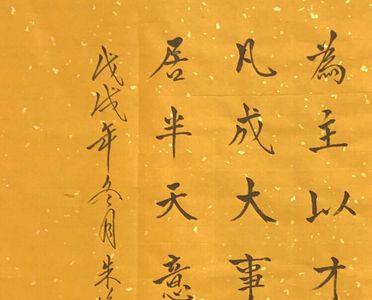 為主以才
凡成大事
居半天意
戊戌年冬月朱